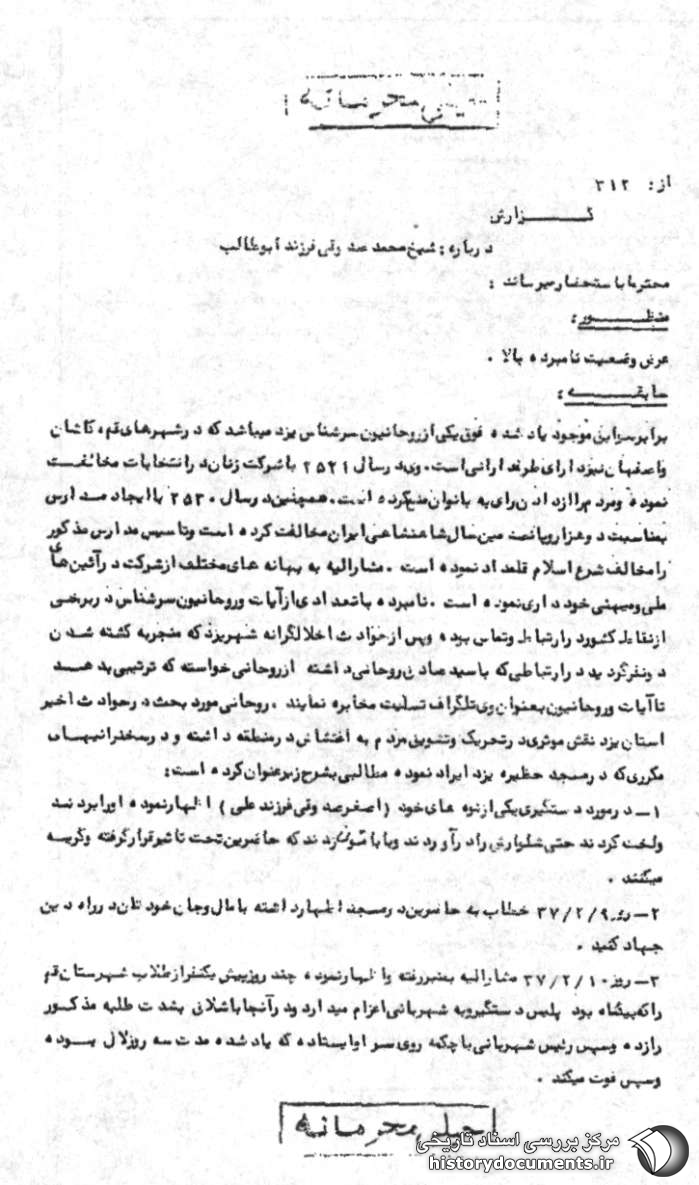 خیلی محرمانه
از: ۳۱۲
گـــزارش
درباره: شیخ محمد صدوقی فرزند ابوطالب
محترما باستحضار میرساند:
منظـــور:
عرض وضعیت نامبرده بالا.
سابقـــه:
برابر سوابق موجود یاد شده فوق یکی از روحانیون سرشناس یزد میباشد که در شهرهای قم، کاشان
و اصفهان نیز دارای طرفدارانی است. وی در سال ۲۵۲۱ با شرکت زنان در انتخابات مخالفت
نموده و مردم را از دادن رای به بانوان منع کرده است. همچنین در سال ۲۵۳۰ با ایجاد مدارس
بمناسبت دو هزار و پانصدمین سال شاهنشاهی ایران مخالفت کرده است و تاسیس مدارس مذکور
را مخالف شرع اسلام قلمداد نموده است. مشارالیه به بهانه های مختلف از شرکت در آئین های
ملی و میهنی خودداری نموده است. نامبرده با تعدادی از آیات و روحانیون سرشناس در برخی
از نقاط کشور در ارتباط و تماس بوده و پس از حوادث اخلالگرانه شهر یزد که منجر به کشته شدن
دو نفر گردید در ارتباطی که با سید صادق روحانی داشته از روحانی خواسته که ترتیبی بدهد
تا آیات و روحانیون بعنوان وی تلگراف تسلیت مخابره نمایند. روحانی مورد بحث در حوادث اخیر
استان یزد نقش موثری در تحریک و تشویق مردم به اغتشاش در منطقه داشته و در سخنرانیهای
مکرری که در مسجد حظیره یزد ایراد نموده مطالبی بشرح زیر عنوان کرده است:
۱ـ در مورد دستگیری یکی از نوه های خود (اصغر صدوقی فرزند علی) اظهار نموده او را بردند
و لخت کردند حتی شلوارش را درآوردند و با باتون زدند که حاضرین تحت تاثیر قرار گرفته و گریه
میکنند.
۲ـ روز ۳۷/۲/۹ خطاب به حاضرین در مسجد اظهار داشته با مال و جان خودتان در راه دین
جهاد کنید.
۳ـ روز ۳۷/۲/۱۰ مشارالیه بمنبر رفته و اظهار نموده چند روز پیش یکنفر از طلاب شهرستان قم
را که بیگناه بود پلیس دستگیر و به شهربانی اعزام میدارد و در آنجا با شلاق بشدت طلبه مذکور
را زده و سپس رئیس شهربانی با چکمه روی سر او ایستاده که یاد شده مدت سه روز لال بوده
و سپس فوت میکند.
خیلی محرمانه
مرکز بررسی اسناد تاریخی
historydocuments.ir